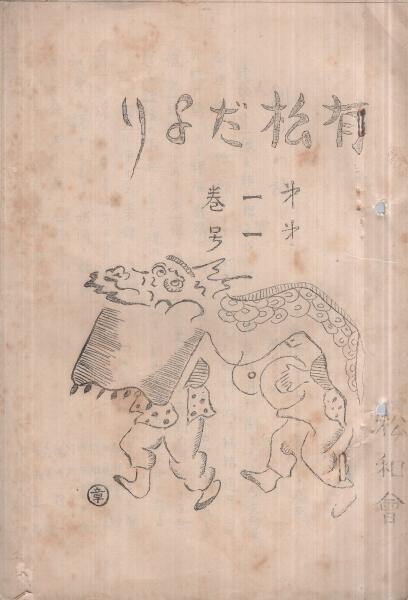 有松だより
第一巻
第一号
松和會
章